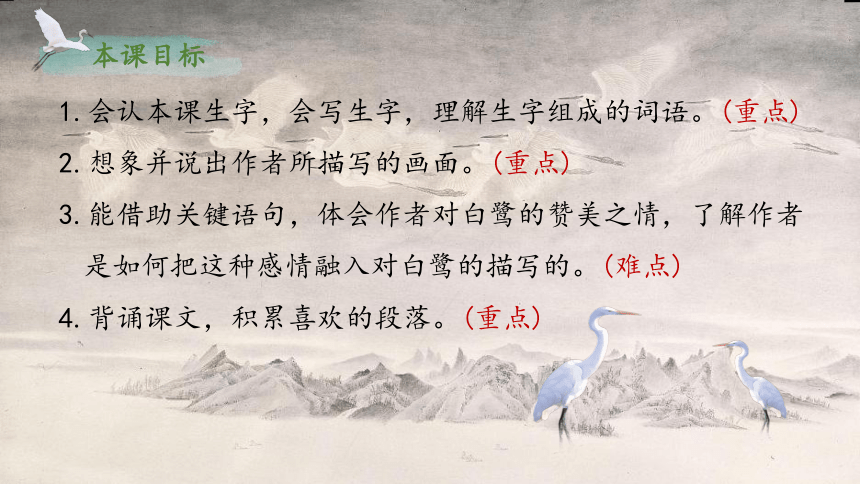 本课目标
1.会认本课生字，会写生字，理解生字组成的词语。(重点)
2.想象并说出作者所描写的画面。(重点)
3.能借助关键语句，体会作者对白鹭的赞美之情，了解作者
是如何把这种感情融入对白鹭的描写的。(难点)
4.背诵课文，积累喜欢的段落。(重点)